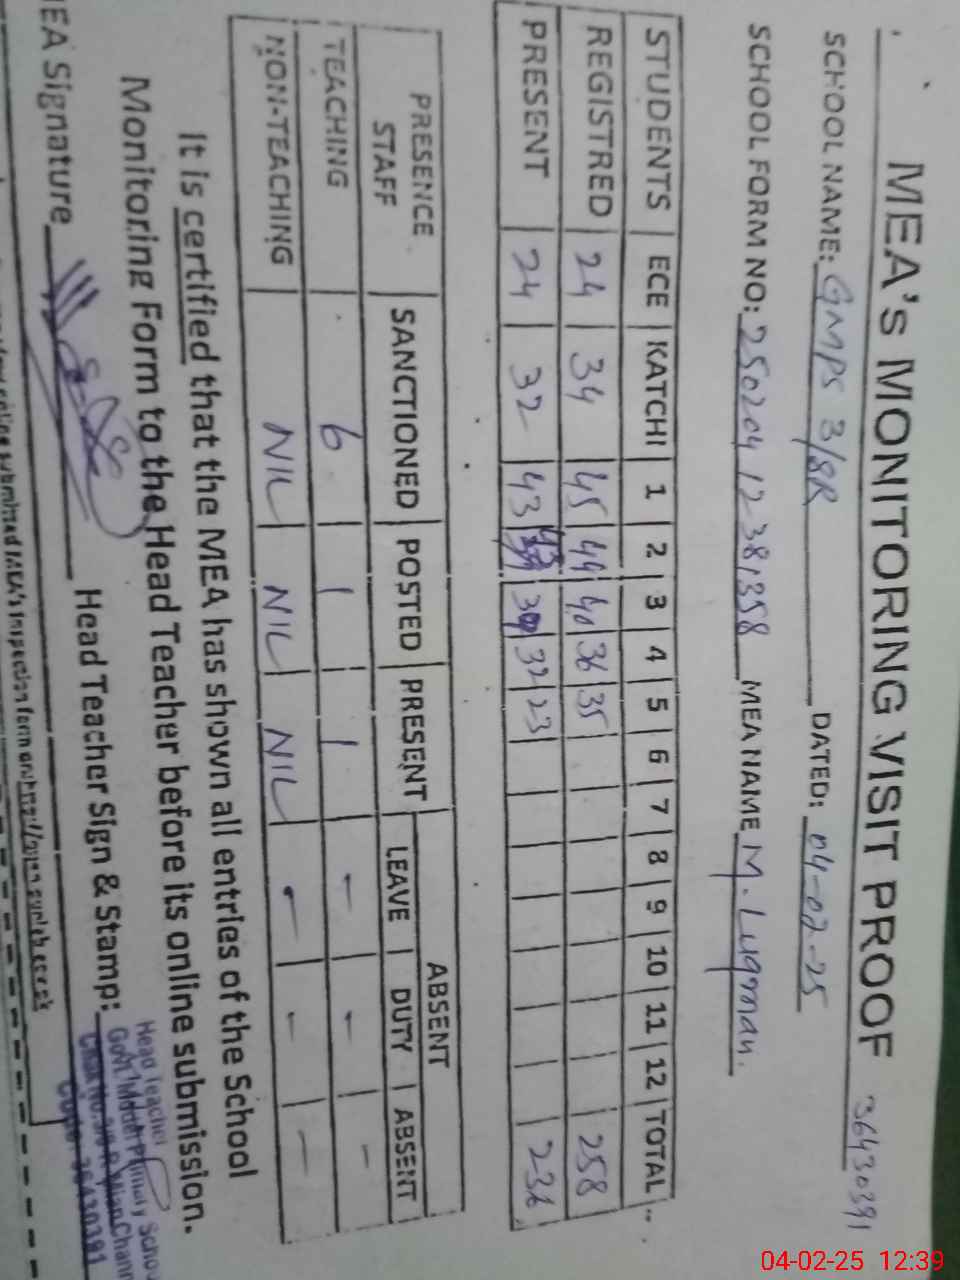 MEA's MONITORING VISIT PROOF 36430391
SCHOOL NAME: GMPS 3/8R DATED: 04-02-25
SCHOOL FORM NO: 250204 12 38,358 MEA NAME M. Luqman.
STUDENTS ECE KATCHI 1 2 3 4 5 6 7 8 9 10 11 12 TOTAL
REGISTRED 24 34 45 44 40 36 35 258
PRESENT 24 32 43 32 23 236
PRESENCE STAFF SANCTIONED POSTED PRESENT ABSENT
LEAVE DUTY ABSENT
TEACHING 6 1 1 - - -
NON-TEACHING NIL NIL NIL - - -
It is certified that the MEA has shown all entries of the School
Monitoring Form to the Head Teacher before its online submission.
MEA Signature Head Teacher Sign & Stamp:
Head Teacher
Govt. Model Primary Schou
Chak No. Mian Chann
Code: 36430391
04-02-25 12:39